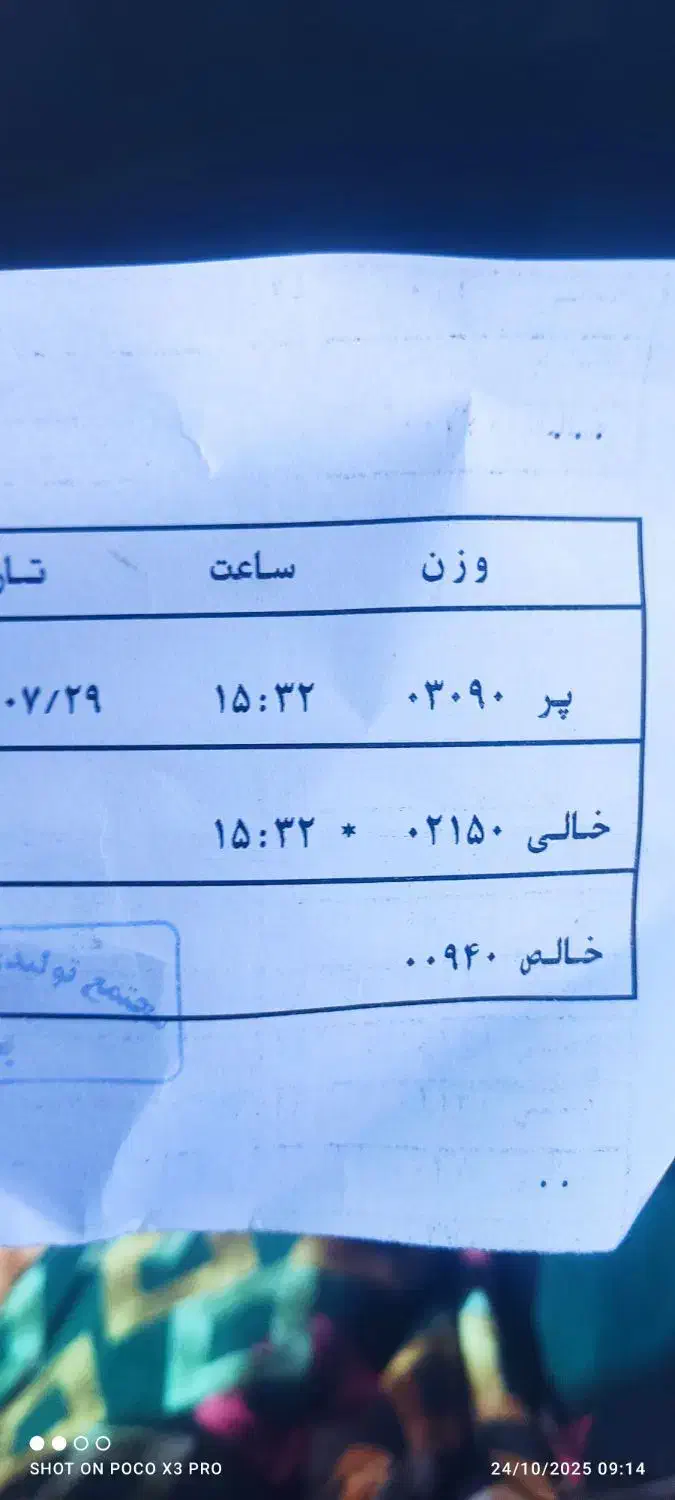 ...
وزن ساعت
پر ۰۳۰۹۰ ۱۵:۳۲ ۰۷/۲۹
خالی ۰۲۱۵۰ * ۱۵:۳۲
خالص ۰۰۹۴۰
مجتمع
..
SHOT ON POCO X3 PRO
24/10/2025 09:14